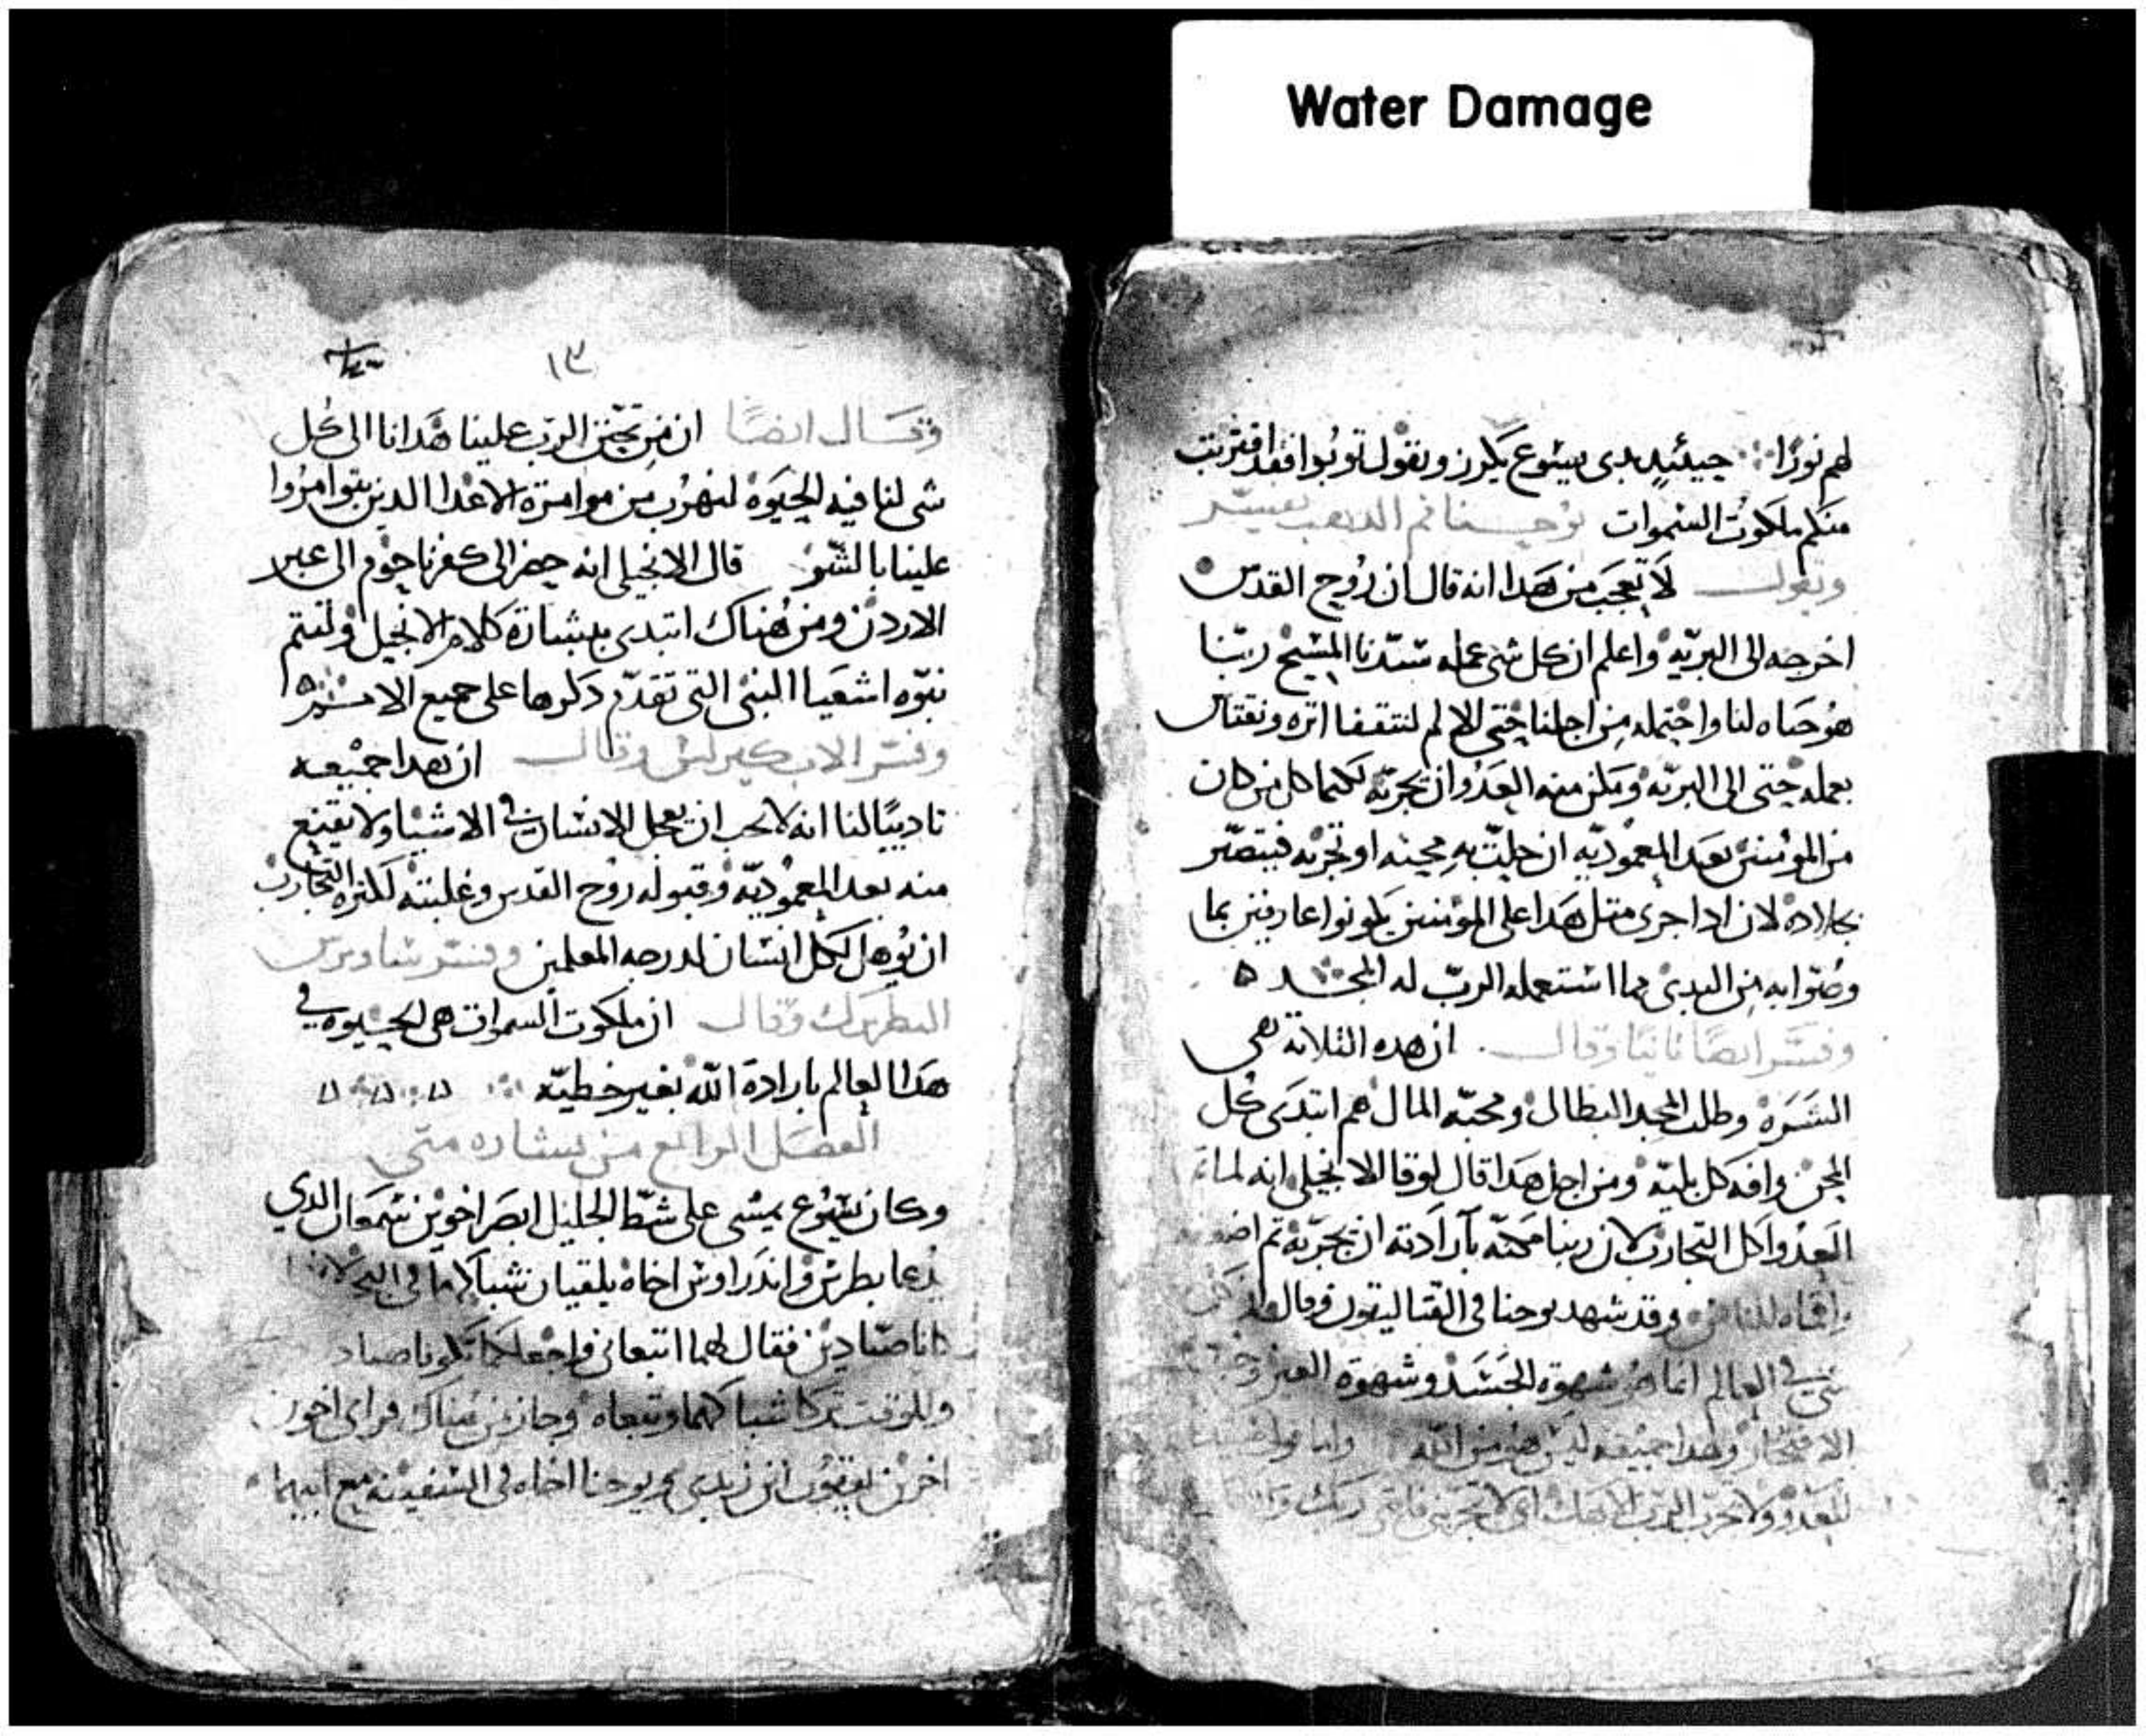 Water Damage
لهم نورًا حينئيدٍ بدى يسوع يكرز ويقول توبوا فقد اقتربت
منكم ملكوت السموات يوحنا فم الدهب يفسر
ويقول لا تعجب من هدا انه قال ان روح القدس
اخرجه الى البريه واعلم ان كل شى عمله سيدنا المسيح ربنا
هو حياه لنا واحتمله من اجلنا حتى الالم لنتقفا اتره ونقتاس
بعمله حتى الى البريه ومكن منه العدو ان يجربه لكيما كل من كان
من المومنين بعد المعموديه ان حلت به محينه او تجربه فيتصبر
بجلاده لان ادا جرى متل هدا على المومنين يكونوا عارفين بما
وصوا به من البدى مما استعمله الرب له المجد ه
وفسر ايضًا تانيًا وقال ان هده التلاته هي
الشره وطلب المجد البطال ومحبه المال هم ابتدى كل
المحن وافه كل بليه ومن اجل هدا قال لوقا الانجيلى انه لما
العدو اكل التجارب لان ربنا مكنه بارادته ان يجربه تم
وقد شهد يوحنا فى القتاليقون وقال
شى فى العالم انما هو شهوة الجسد وشهوة العين
الافتخار وهدا جميعه ليس هو من الله واما
للعدو ولا تجرب الرب الاهك اى لا تجربنى فانى ربك
١٣
وقال ايضًا ان من تحنن الرب علينا هدانا الى كل
شى لنا فيه الحيوة لنهرب من موامرة الاعدا الدين يتوامروا
علينا بالشر قال الانجيلى انه حضر الى كفرناحوم الى عبر
الاردن ومن هناك ابتدى ببشارة كلام الانجيل ولتتم
نبوه اشعيا النبى التى تقدم دكرها على جميع الامم ه
وفسر الاب كيرلس وقال ان هدا جميعه
تاديبًا لنا انه لا يجب ان يعجل الانسان فى الاشيا ولا يقنع
منه بعد المعموديه وقبوله روح القدس وغلبته لكثرة التجارب
ان يوهل لكل انسان لدرجه المعلمين وفسر ساويرس
البطريرك وقال ان ملكوت السموات هى الحيوه فى
هدا العالم بارادة الله بغير خطيه
الفصل الرابع من بشاره متى
وكان يسوع يمشى على شط الجليل ابصر اخوين شمعان الدي
يدعا بطرس واندراوس اخاه يلقيان شباكهما فى البحر لانهما
كانا صيادين فقال لهما اتبعانى فاجعلكما تكونا صياد
وللوقت تركا شباكهما وتبعاه وجاز من هناك فراى اخوين
اخرين يعقوب ابن زبدى ويوحنا اخاه فى السفينه مع ابيهما